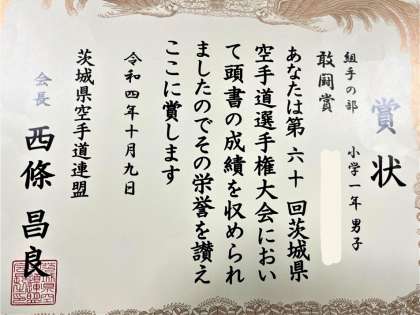 賞状
組手の部 小学一年 男子
敢闘賞
あなたは第六十回茨城県
空手道選手権大会におい
て頭書の成績を収められ
ましたのでその栄誉を讃え
ここに賞します
令和四年十月九日
茨城県空手道連盟
会長 西條昌良